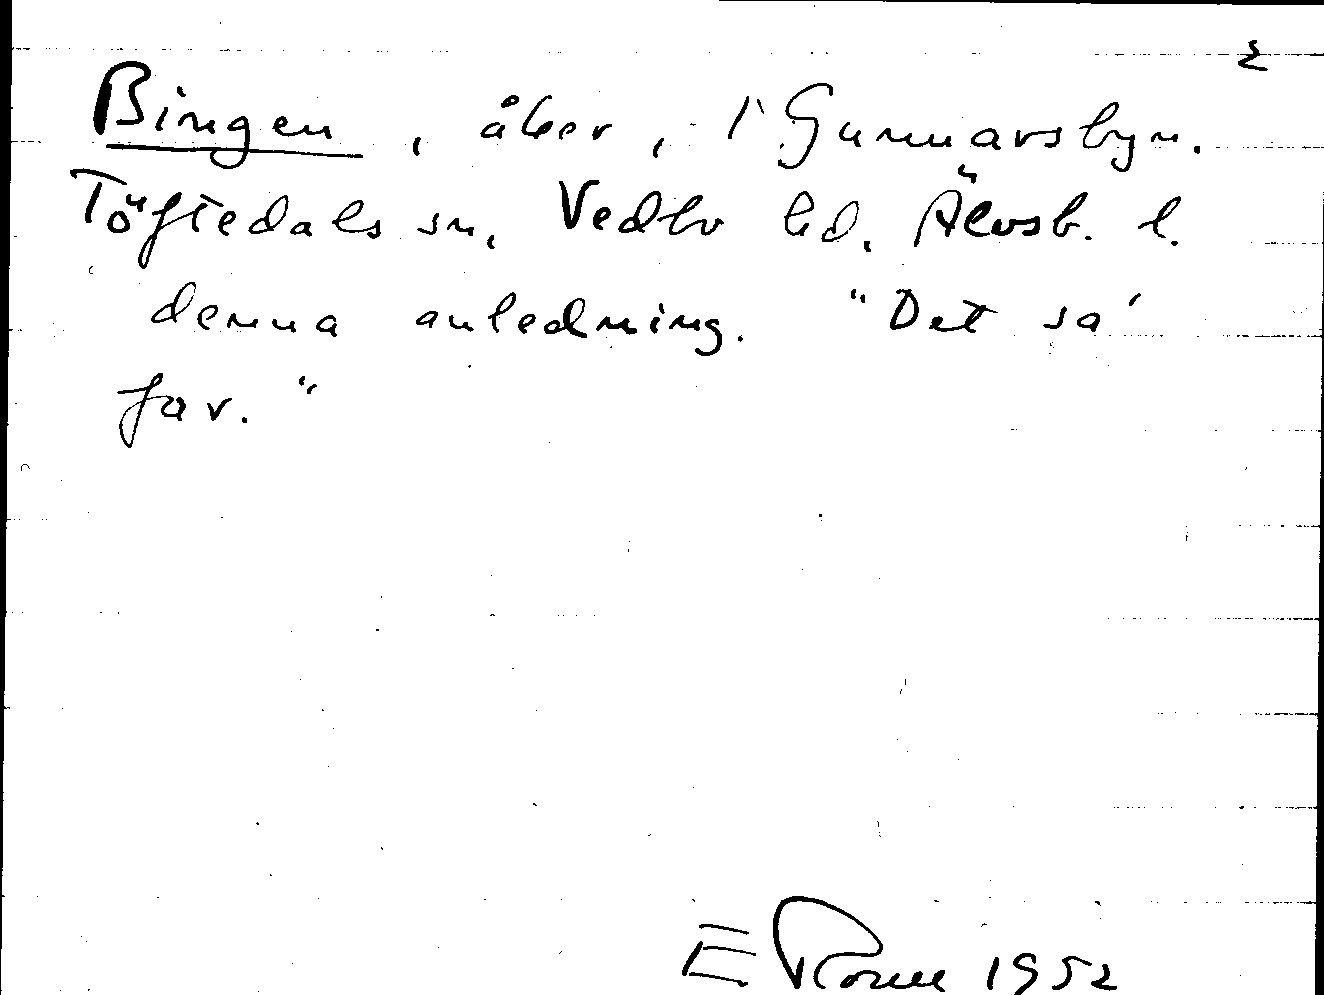 2
Bingen, åker, i Gunnarsbyn.
Töftedals sn, Vedbo hd. Älvsb. l.
denna anledning. "Det sa'
far."
E 1952